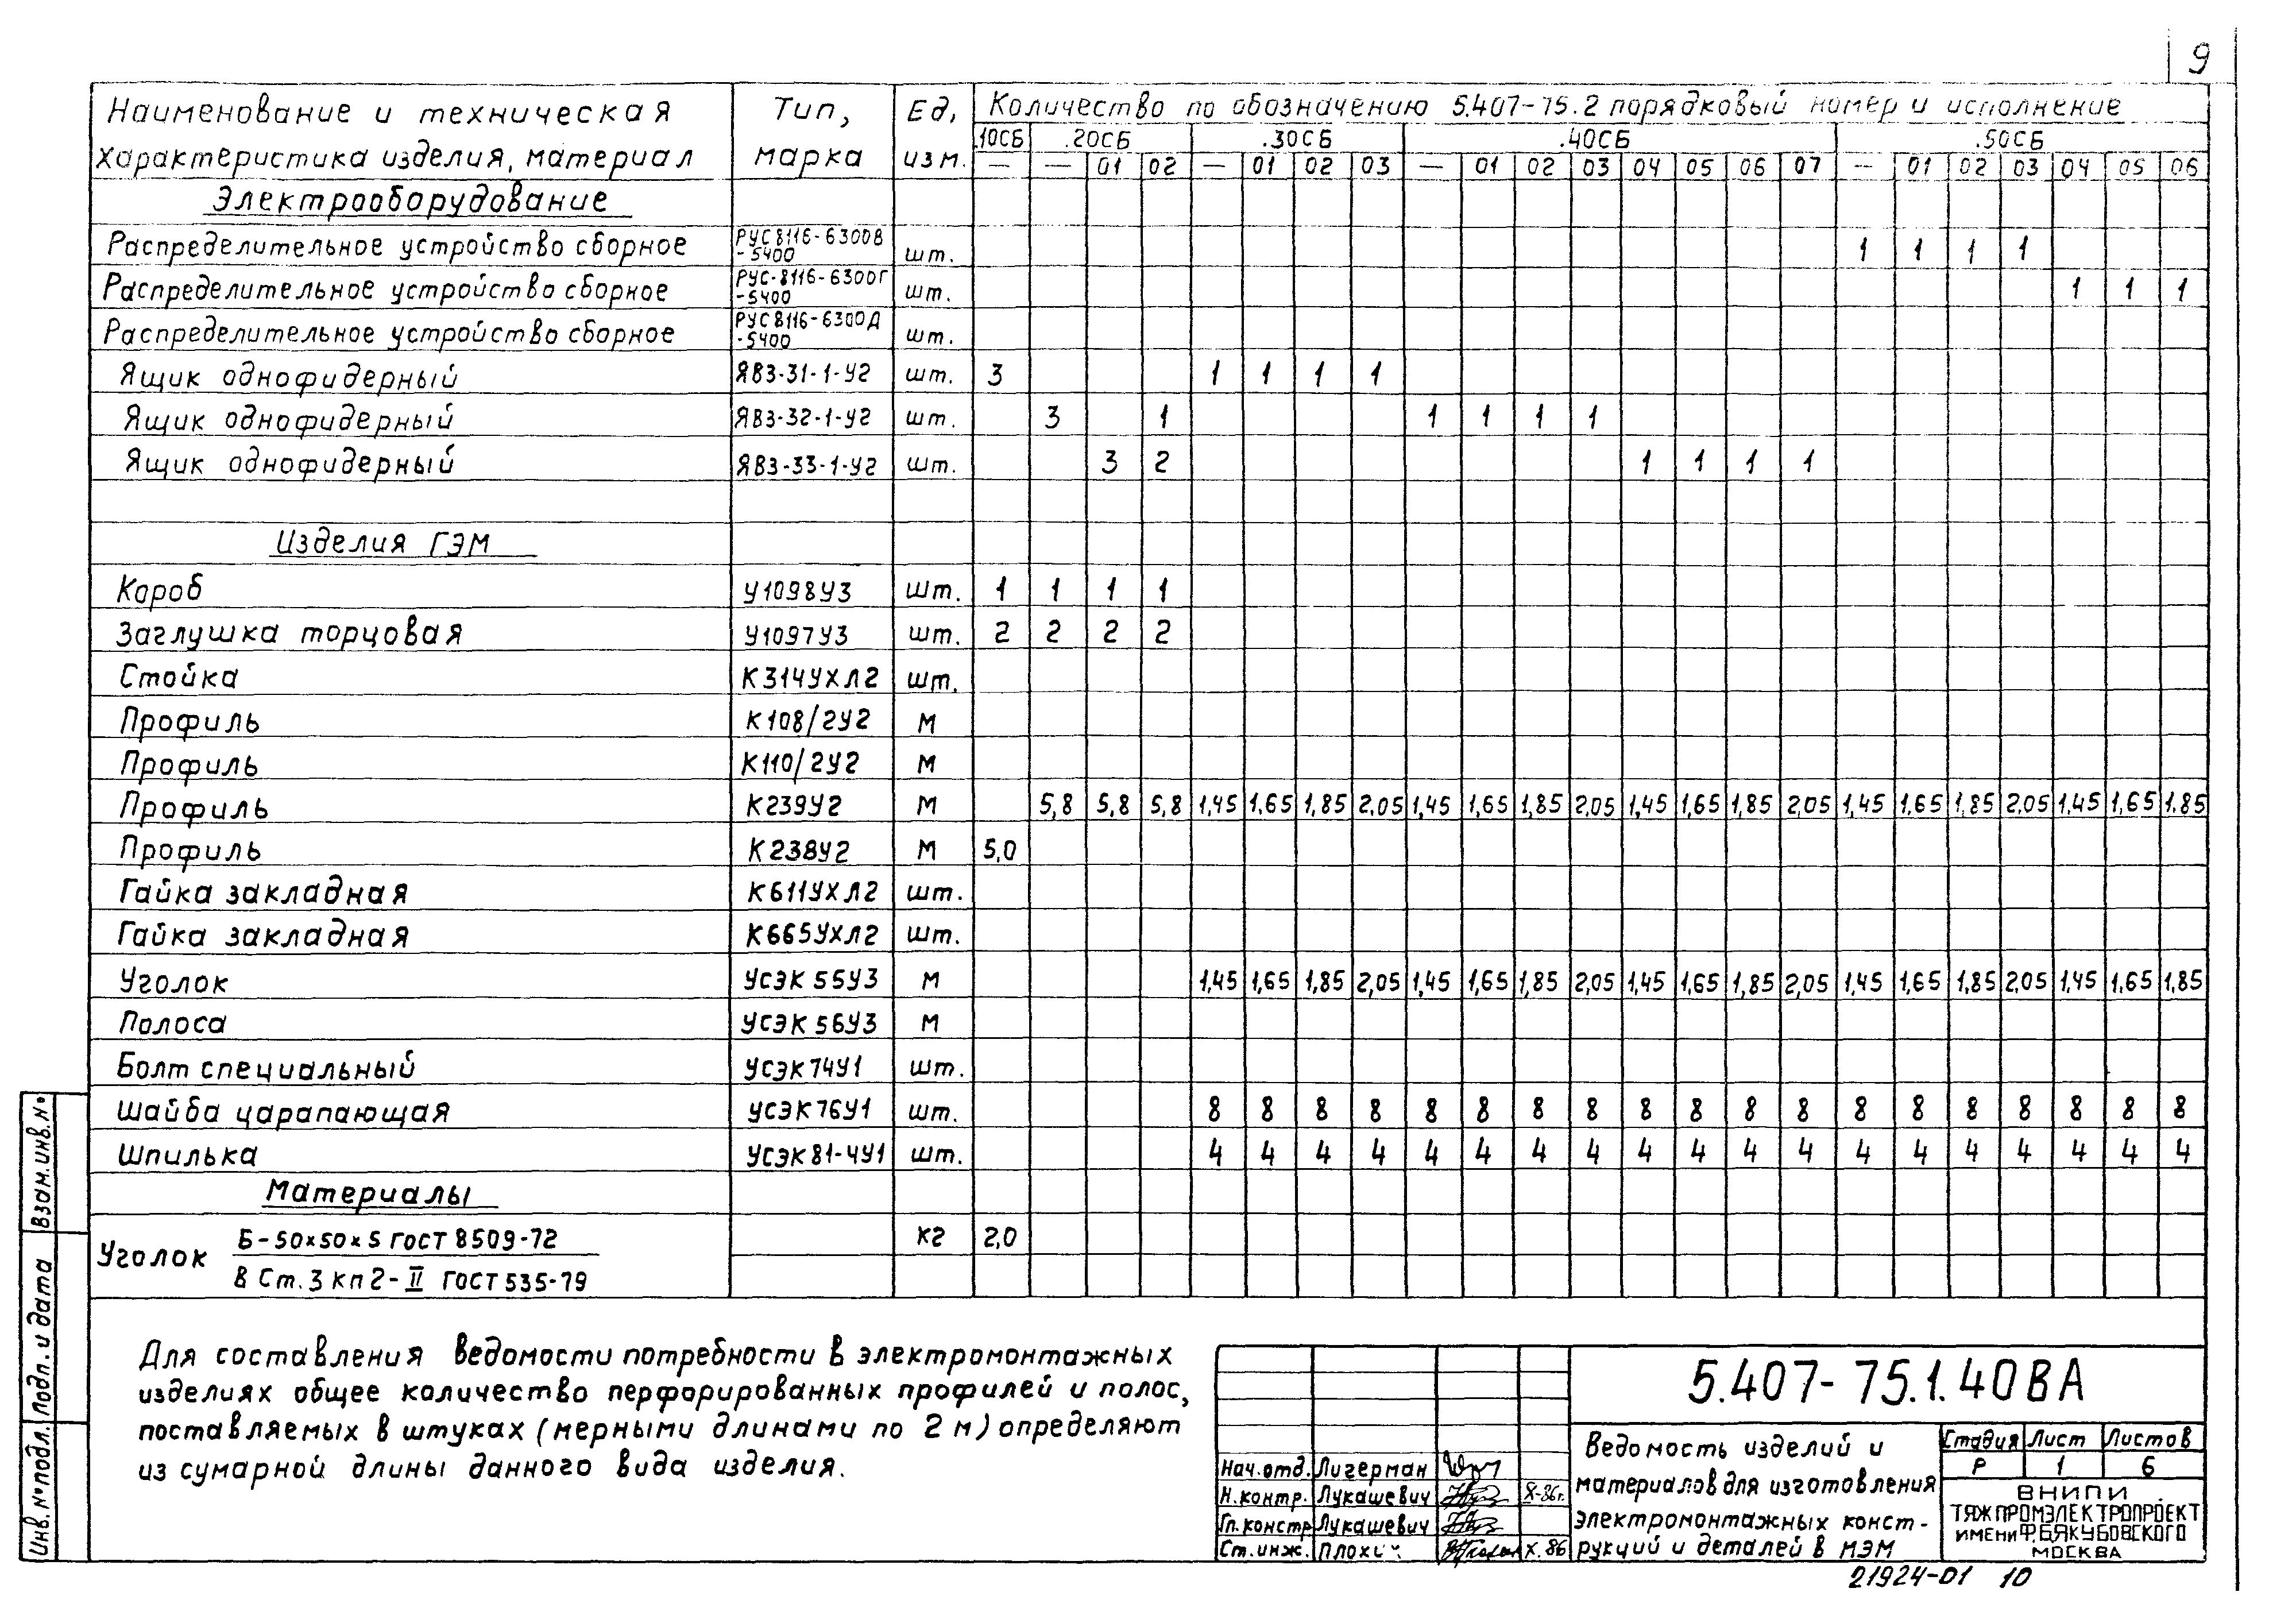 9
Наименование и техническая характеристика изделия, материал | Тип, марка | Ед. изм. | Количество по обозначению 5.407-75.2 порядковый номер и исполнение
.10СБ .20СБ .30СБ .40СБ .50СБ
— — 01 02 — 01 02 03 — 01 02 03 04 05 06 07 — 01 02 03 04 05 06
Электрооборудование
Распределительное устройство сборное РУС8116-6300В-5400 шт. 1 1 1 1
Распределительное устройство сборное РУС-8116-6300Г-5400 шт. 1 1 1
Распределительное устройство сборное РУС8116-6300Д-5400 шт.
Ящик однофидерный ЯВЗ-31-1-У2 шт. 3 1 1 1 1
Ящик однофидерный ЯВЗ-32-1-У2 шт. 3 1 1 1 1 1
Ящик однофидерный ЯВЗ-33-1-У2 шт. 3 2 1 1 1 1
Изделия ГЭМ
Короб У1098У3 шт. 1 1 1 1
Заглушка торцовая У1097У3 шт. 2 2 2 2
Стойка К314УХЛ2 шт.
Профиль К108/2У2 м
Профиль К110/2У2 м
Профиль К239У2 м 5,8 5,8 5,8 1,45 1,65 1,85 2,05 1,45 1,65 1,85 2,05 1,45 1,65 1,85 2,05 1,45 1,65 1,85 2,05 1,45 1,65 1.85
Профиль К238У2 м 5,0
Гайка закладная К611УХЛ2 шт.
Гайка закладная К665УХЛ2 шт.
Уголок УСЭК 55У3 м 1,45 1,65 1,85 2,05 1,45 1,65 1,85 2,05 1,45 1,65 1,85 2,05 1,45 1,65 1,85 2,05 1,45 1,65 1,85
Полоса УСЭК 56У3 м
Болт специальный УСЭК74У1 шт.
Шайба царапающая УСЭК76У1 шт. 8 8 8 8 8 8 8 8 8 8 8 8 8 8 8 8 8 8 8
Шпилька УСЭК81-4У1 шт. 4 4 4 4 4 4 4 4 4 4 4 4 4 4 4 4 4 4 4
Материалы
Уголок Б-50х50х5 ГОСТ 8509-72 кг 2,0
В Ст.3 кп2-II ГОСТ535-79
Для составления ведомости потребности в электромонтажных
изделиях общее количество перфорированных профилей и полос,
поставляемых в штуках (мерными длинами по 2 м) определяют
из сумарной длины данного вида изделия.
5.407-75.1.40ВА
Ведомость изделий и
материалов для изготовления
электромонтажных конст-
рукций и деталей в МЭМ
Стадия Лист Листов
Р 1 6
ВНИПИ
ТЯЖПРОМЭЛЕКТРОПРОЕКТ
ИМЕНИ Ф.Б.ЯКУБОВСКОГО
МОСКВА
Нач.отд. Лигерман
Н.контр. Лукашевич X-86г.
Гл.констр Лукашевич
Ст.инж. Плохи X.86
Взам.инв.№
Подп. и дата
Инв.№подл.
21924-01 10